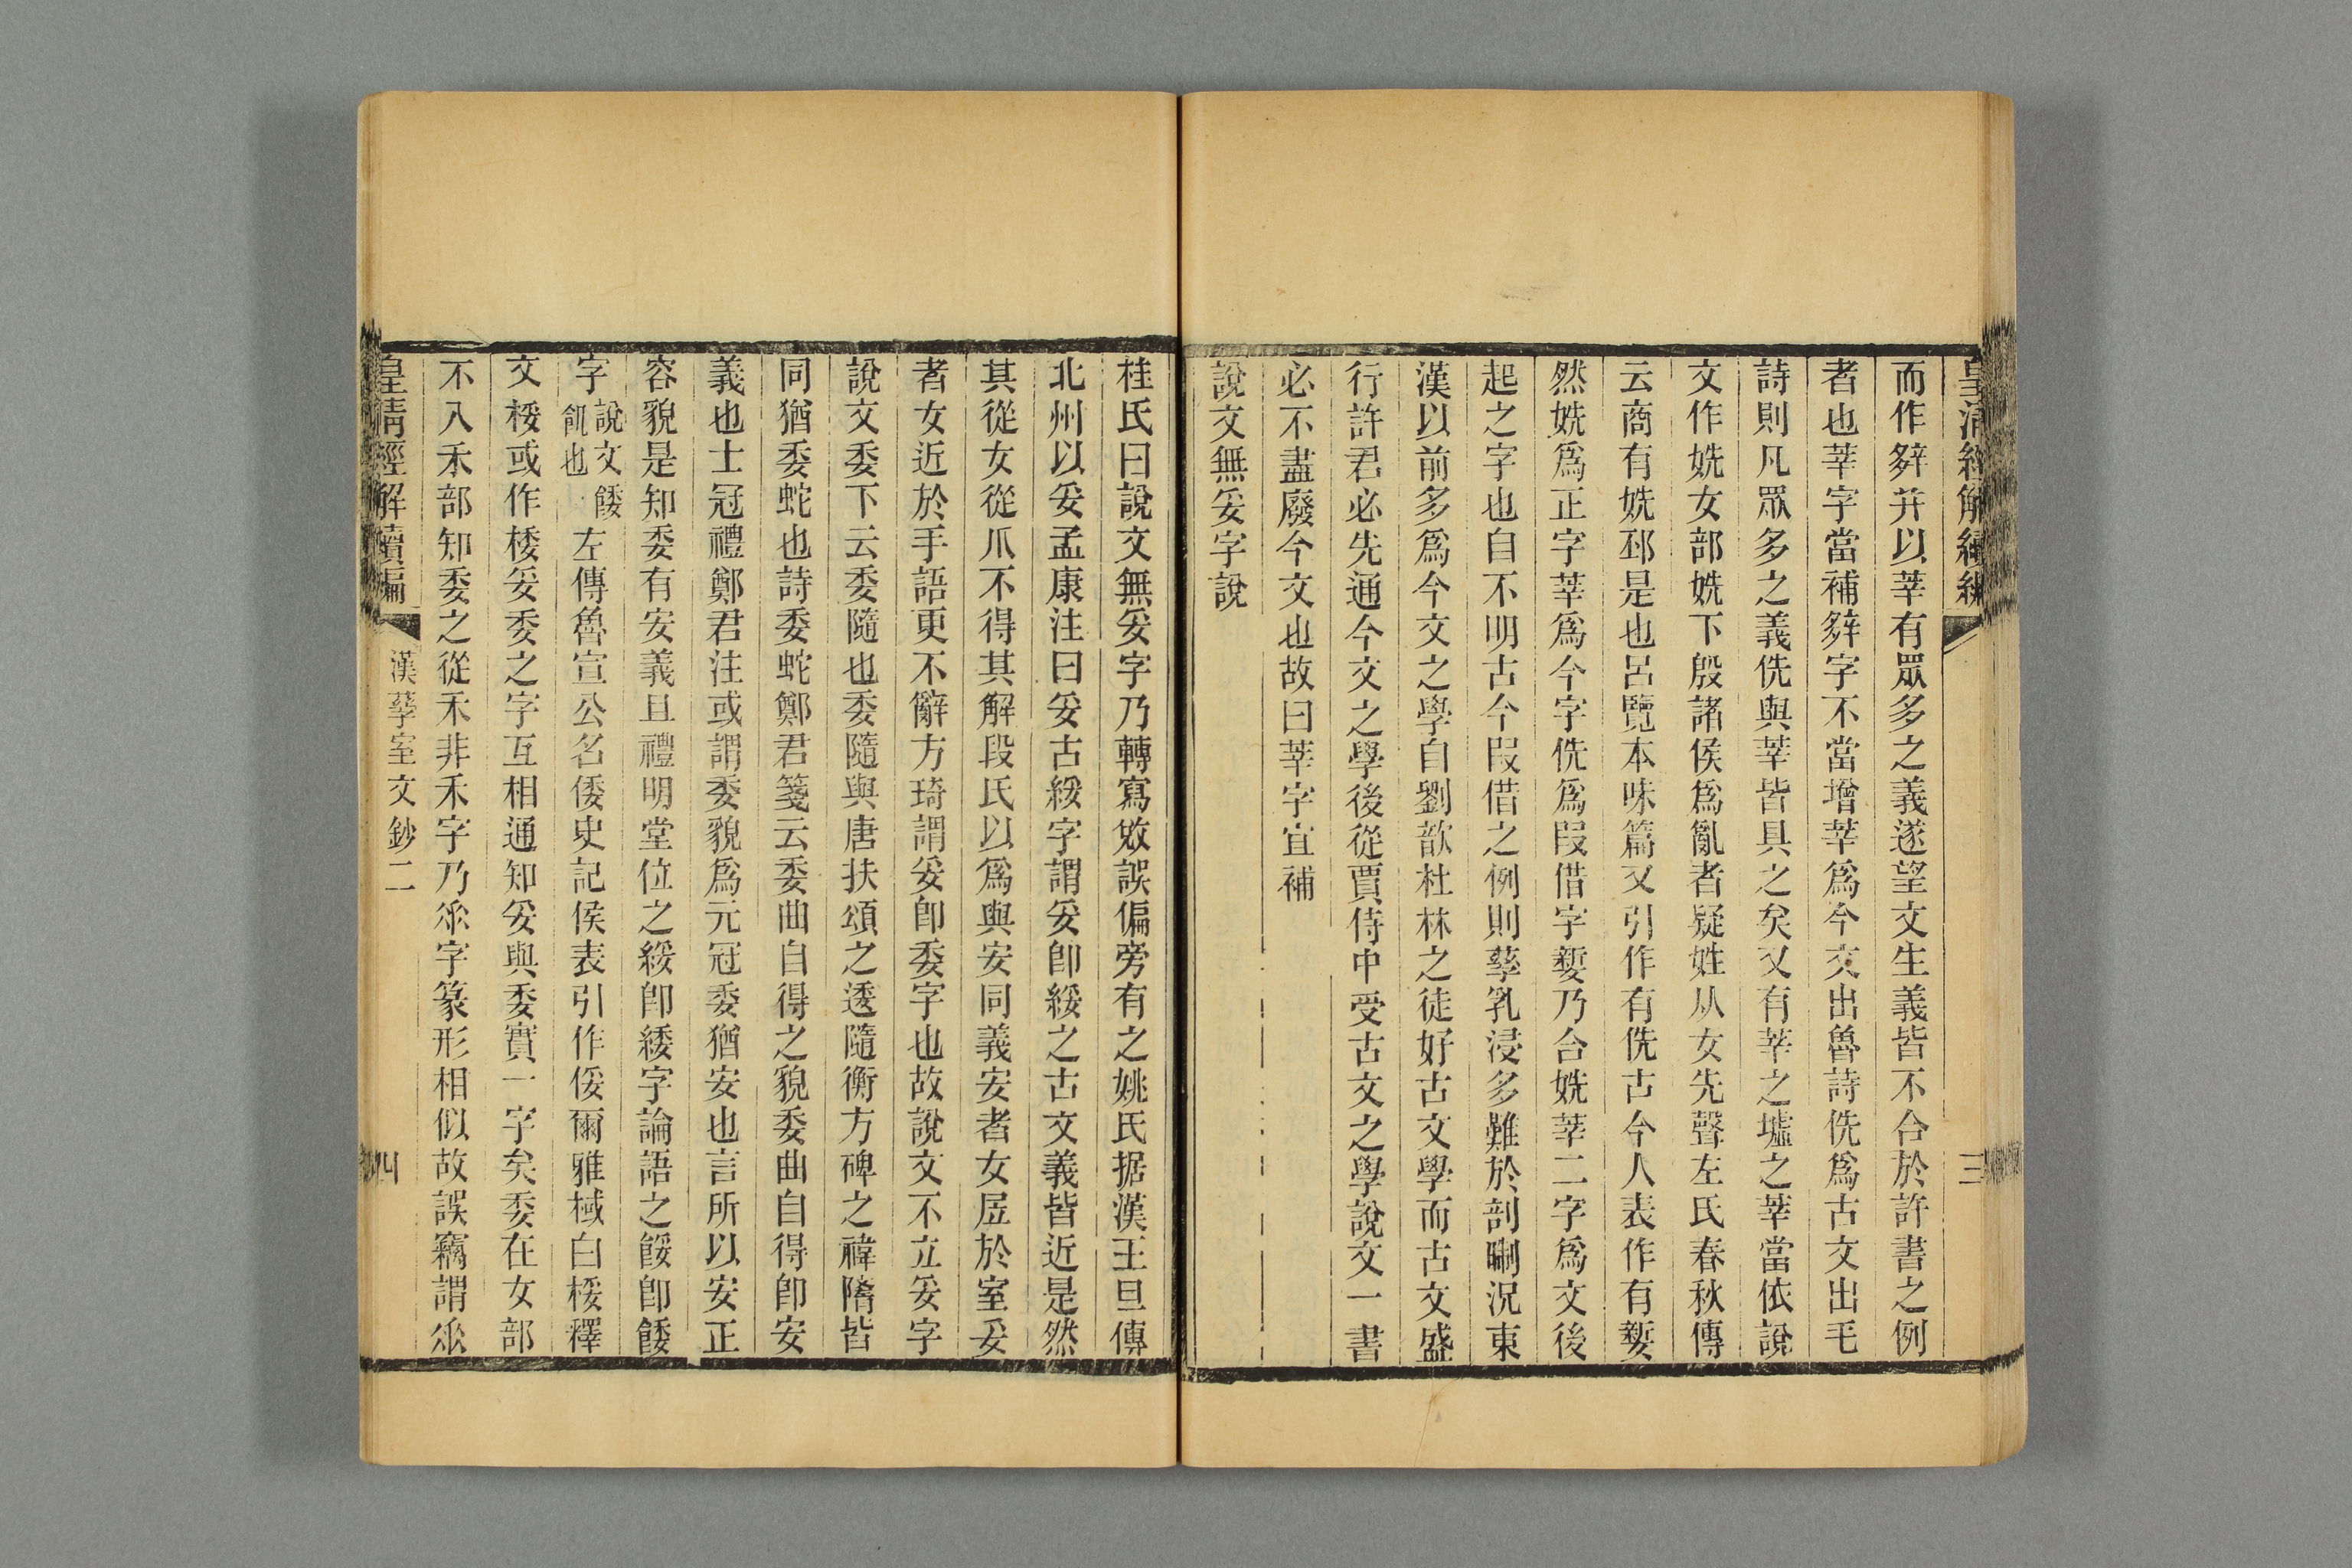 皇清經解續編
三
而作㜪并以莘有眾多之義遂望文生義皆不合於許書之例
者也莘字當補㜪字不當增莘爲今文出魯詩侁爲古文出毛
詩則凡眾多之義侁與莘皆具之矣又有莘之墟之莘當依說
文作姺女部姺下殷諸侯爲亂者疑姓从女先聲左氏春秋傳
云商有姺邳是也呂覽本味篇又引作有侁古今人表作有㜪
然姺爲正字莘爲今字侁爲叚借字㜪乃合姺莘二字爲文後
起之字也自不明古今叚借之例則孳乳浸多難於剖晰況東
漢以前多爲今文之學自劉歆杜林之徒好古文學而古文盛
行許君必先通今文之學後從賈侍中受古文之學說文一書
必不盡廢今文也故曰莘字宜補
說文無妥字說
桂氏曰說文無妥字乃轉寫敚誤偏旁有之姚氏据漢王旦傳
北州以妥孟康注曰妥古綏字謂妥卽綏之古文義皆近是然
其從女從爪不得其解段氏以爲與安同義安者女凥於室妥
者女近於手語更不辭方琦謂妥卽委字也故說文不立妥字
說文委下云委隨也委隨與唐扶頌之逶隨衡方碑之禕隋皆
同猶委蛇也詩委蛇鄭君箋云委曲自得之貌委曲自得卽安
義也士冠禮鄭君注或謂委貌爲元冠委猶安也言所以安正
容貌是知委有安義且禮明堂位之綏卽緌字論語之餒卽餧
字說文餧飢也左傳魯宣公名倭史記侯表引作俀爾雅棫白桵釋
文桵或作楼妥委之字互相通知妥與委實一字矣委在女部
不入禾部知委之從禾非禾字乃𠂹字篆形相似故誤竊謂𠂹
皇清經解續編
漢孳室文鈔二
四